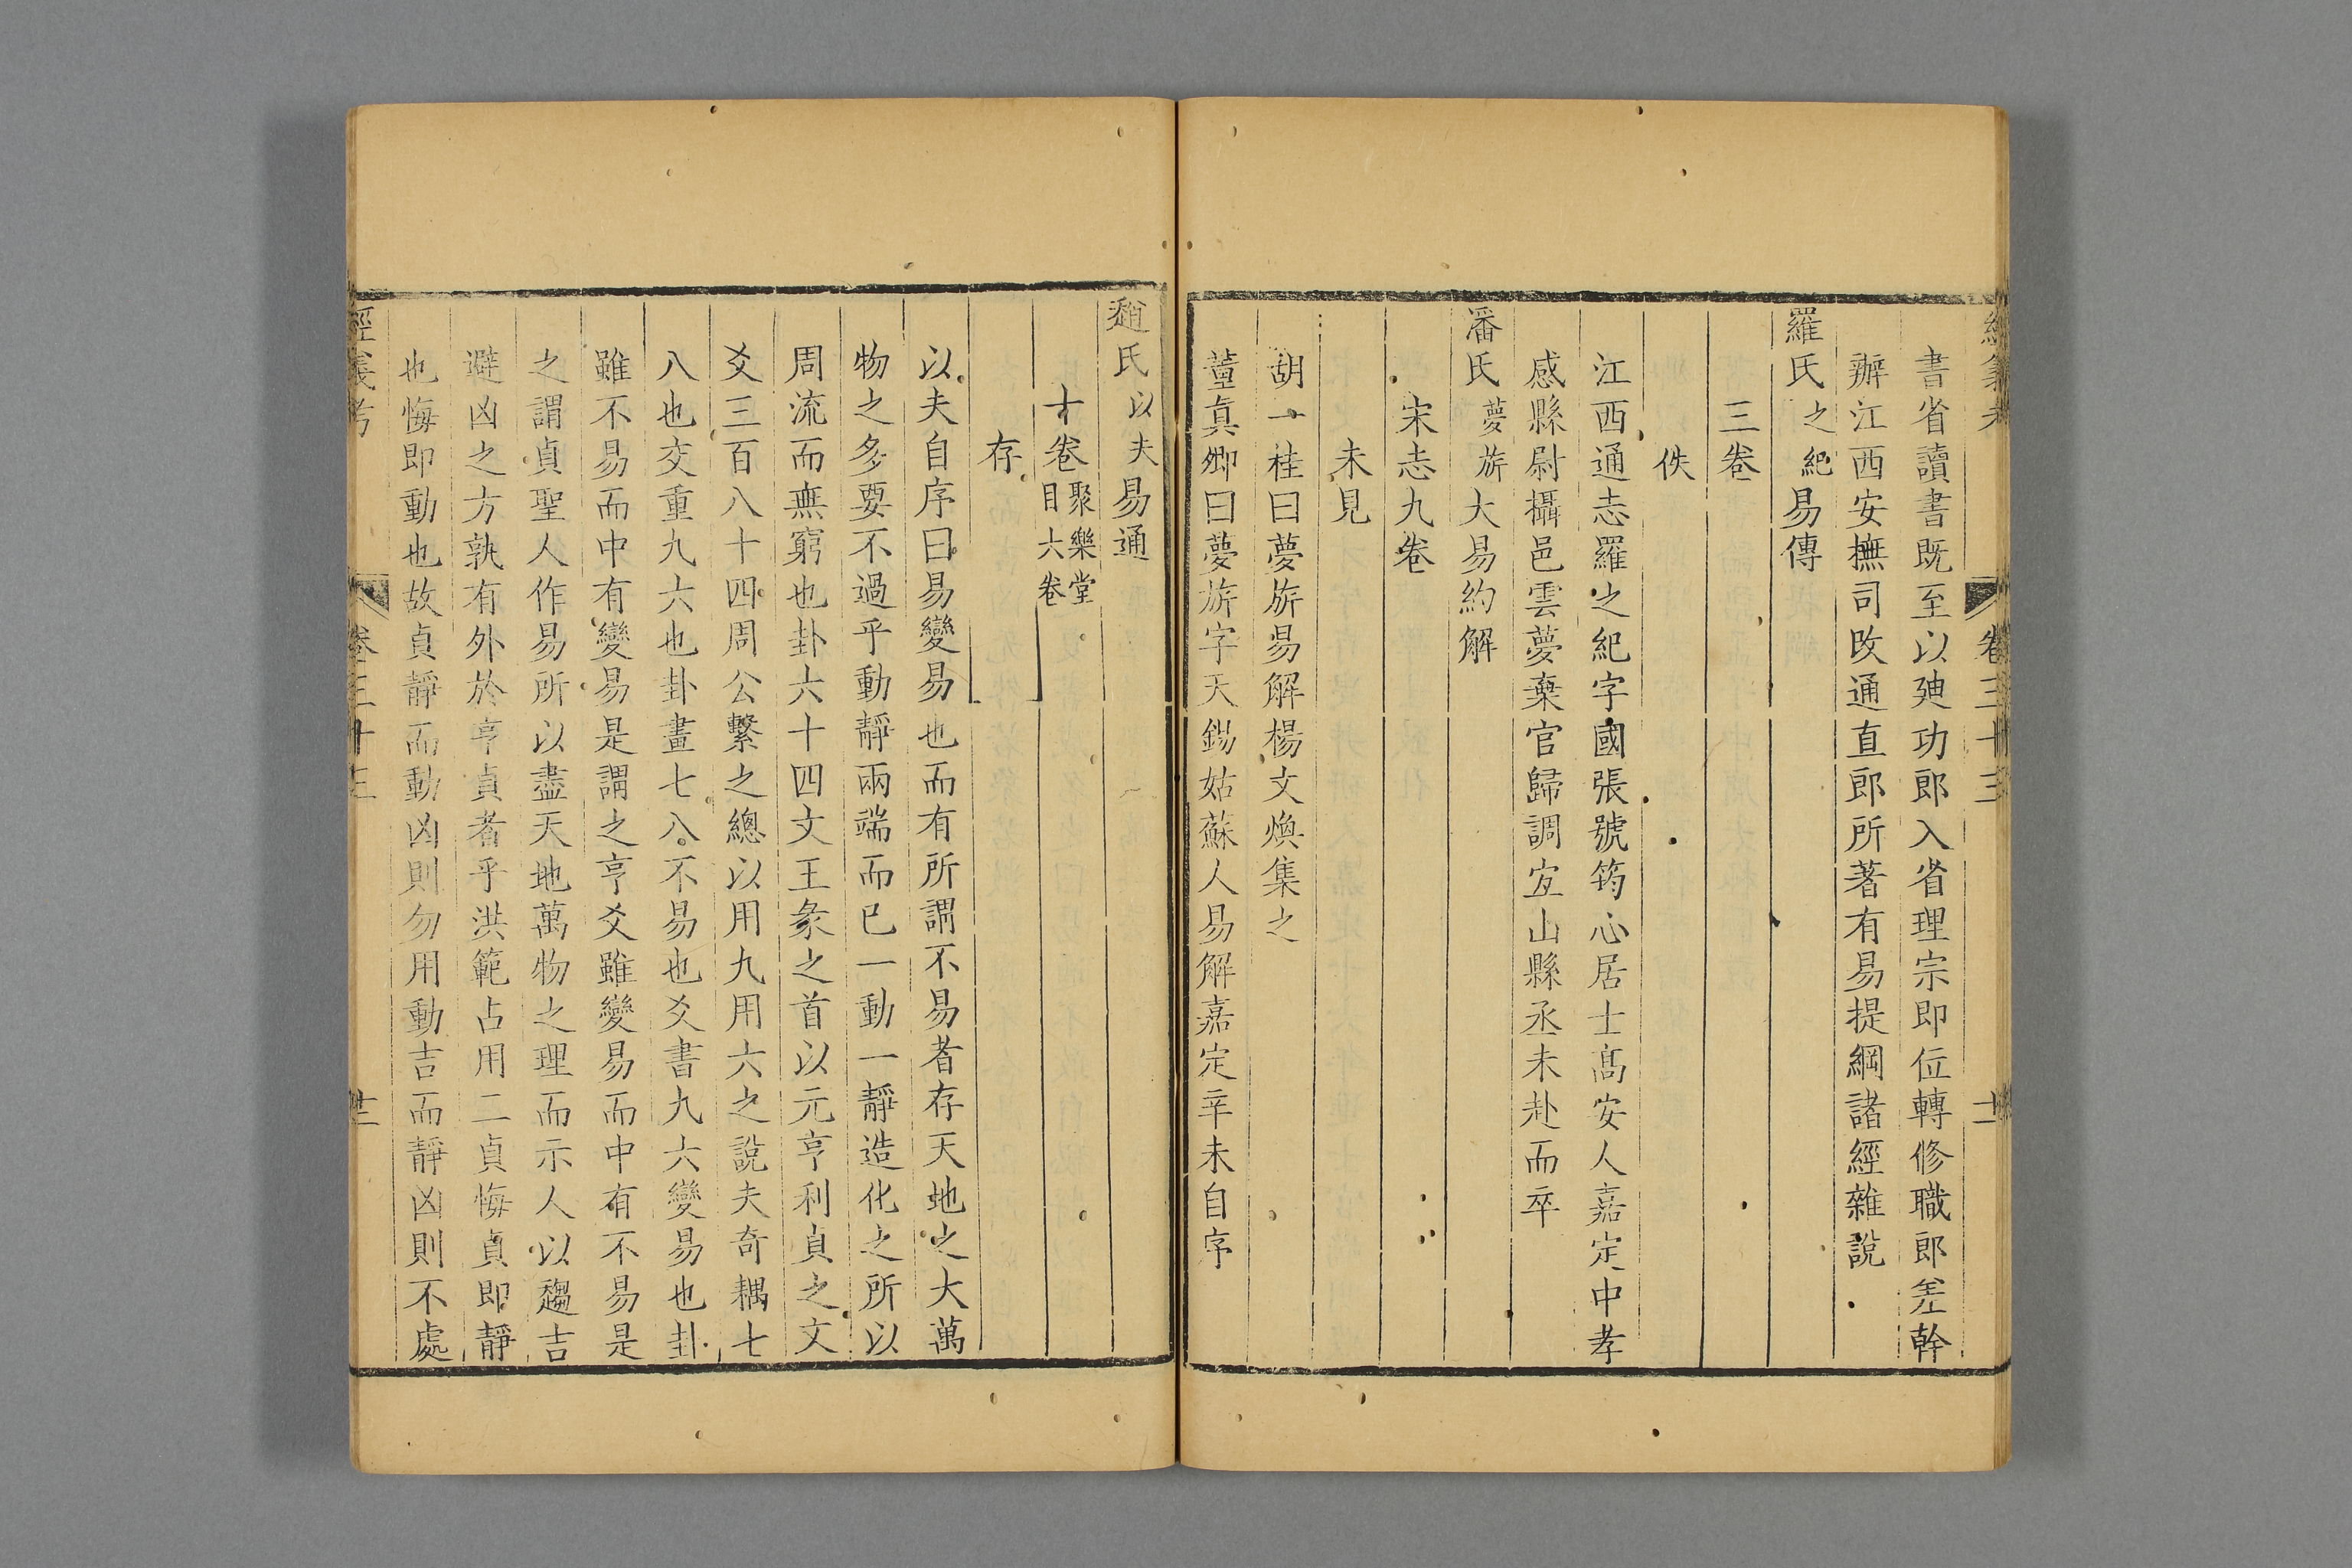 書省讀書既至以廸功郎入省理宗即位轉修職郎差幹
辦江西安撫司改通直郎所著有易提綱諸經雜說
羅氏之紀易傳
三卷
佚
江西通志羅之紀字國張號筠心居士髙安人嘉定中孝
感縣尉攝邑雲夢棄官歸調宜山縣丞未赴而卒
潘氏夢旂大易約解
宋志九卷
未見
胡一桂曰夢旂易解楊文煥集之
董真卿曰夢旂字天錫姑蘇人易解嘉定辛未自序
趙氏以夫易通
十卷聚樂堂目六卷
存
以夫自序曰易變易也而有所謂不易者存天地之大萬
物之多要不過乎動靜兩端而已一動一靜造化之所以
周流而無窮也卦六十四文王彖之首以元亨利貞之文
爻三百八十四周公繫之總以用九用六之說夫奇耦七
八也交重九六也卦畫七八不易也爻書九六變易也卦
雖不易而中有變易是謂之亨爻雖變易而中有不易是
之謂貞聖人作易所以盡天地萬物之理而示人以趨吉
避凶之方孰有外於亨貞者乎洪範占用二貞悔貞即靜
也悔即動也故貞靜而動凶則勿用動吉而靜凶則不處
經義考
卷三十三